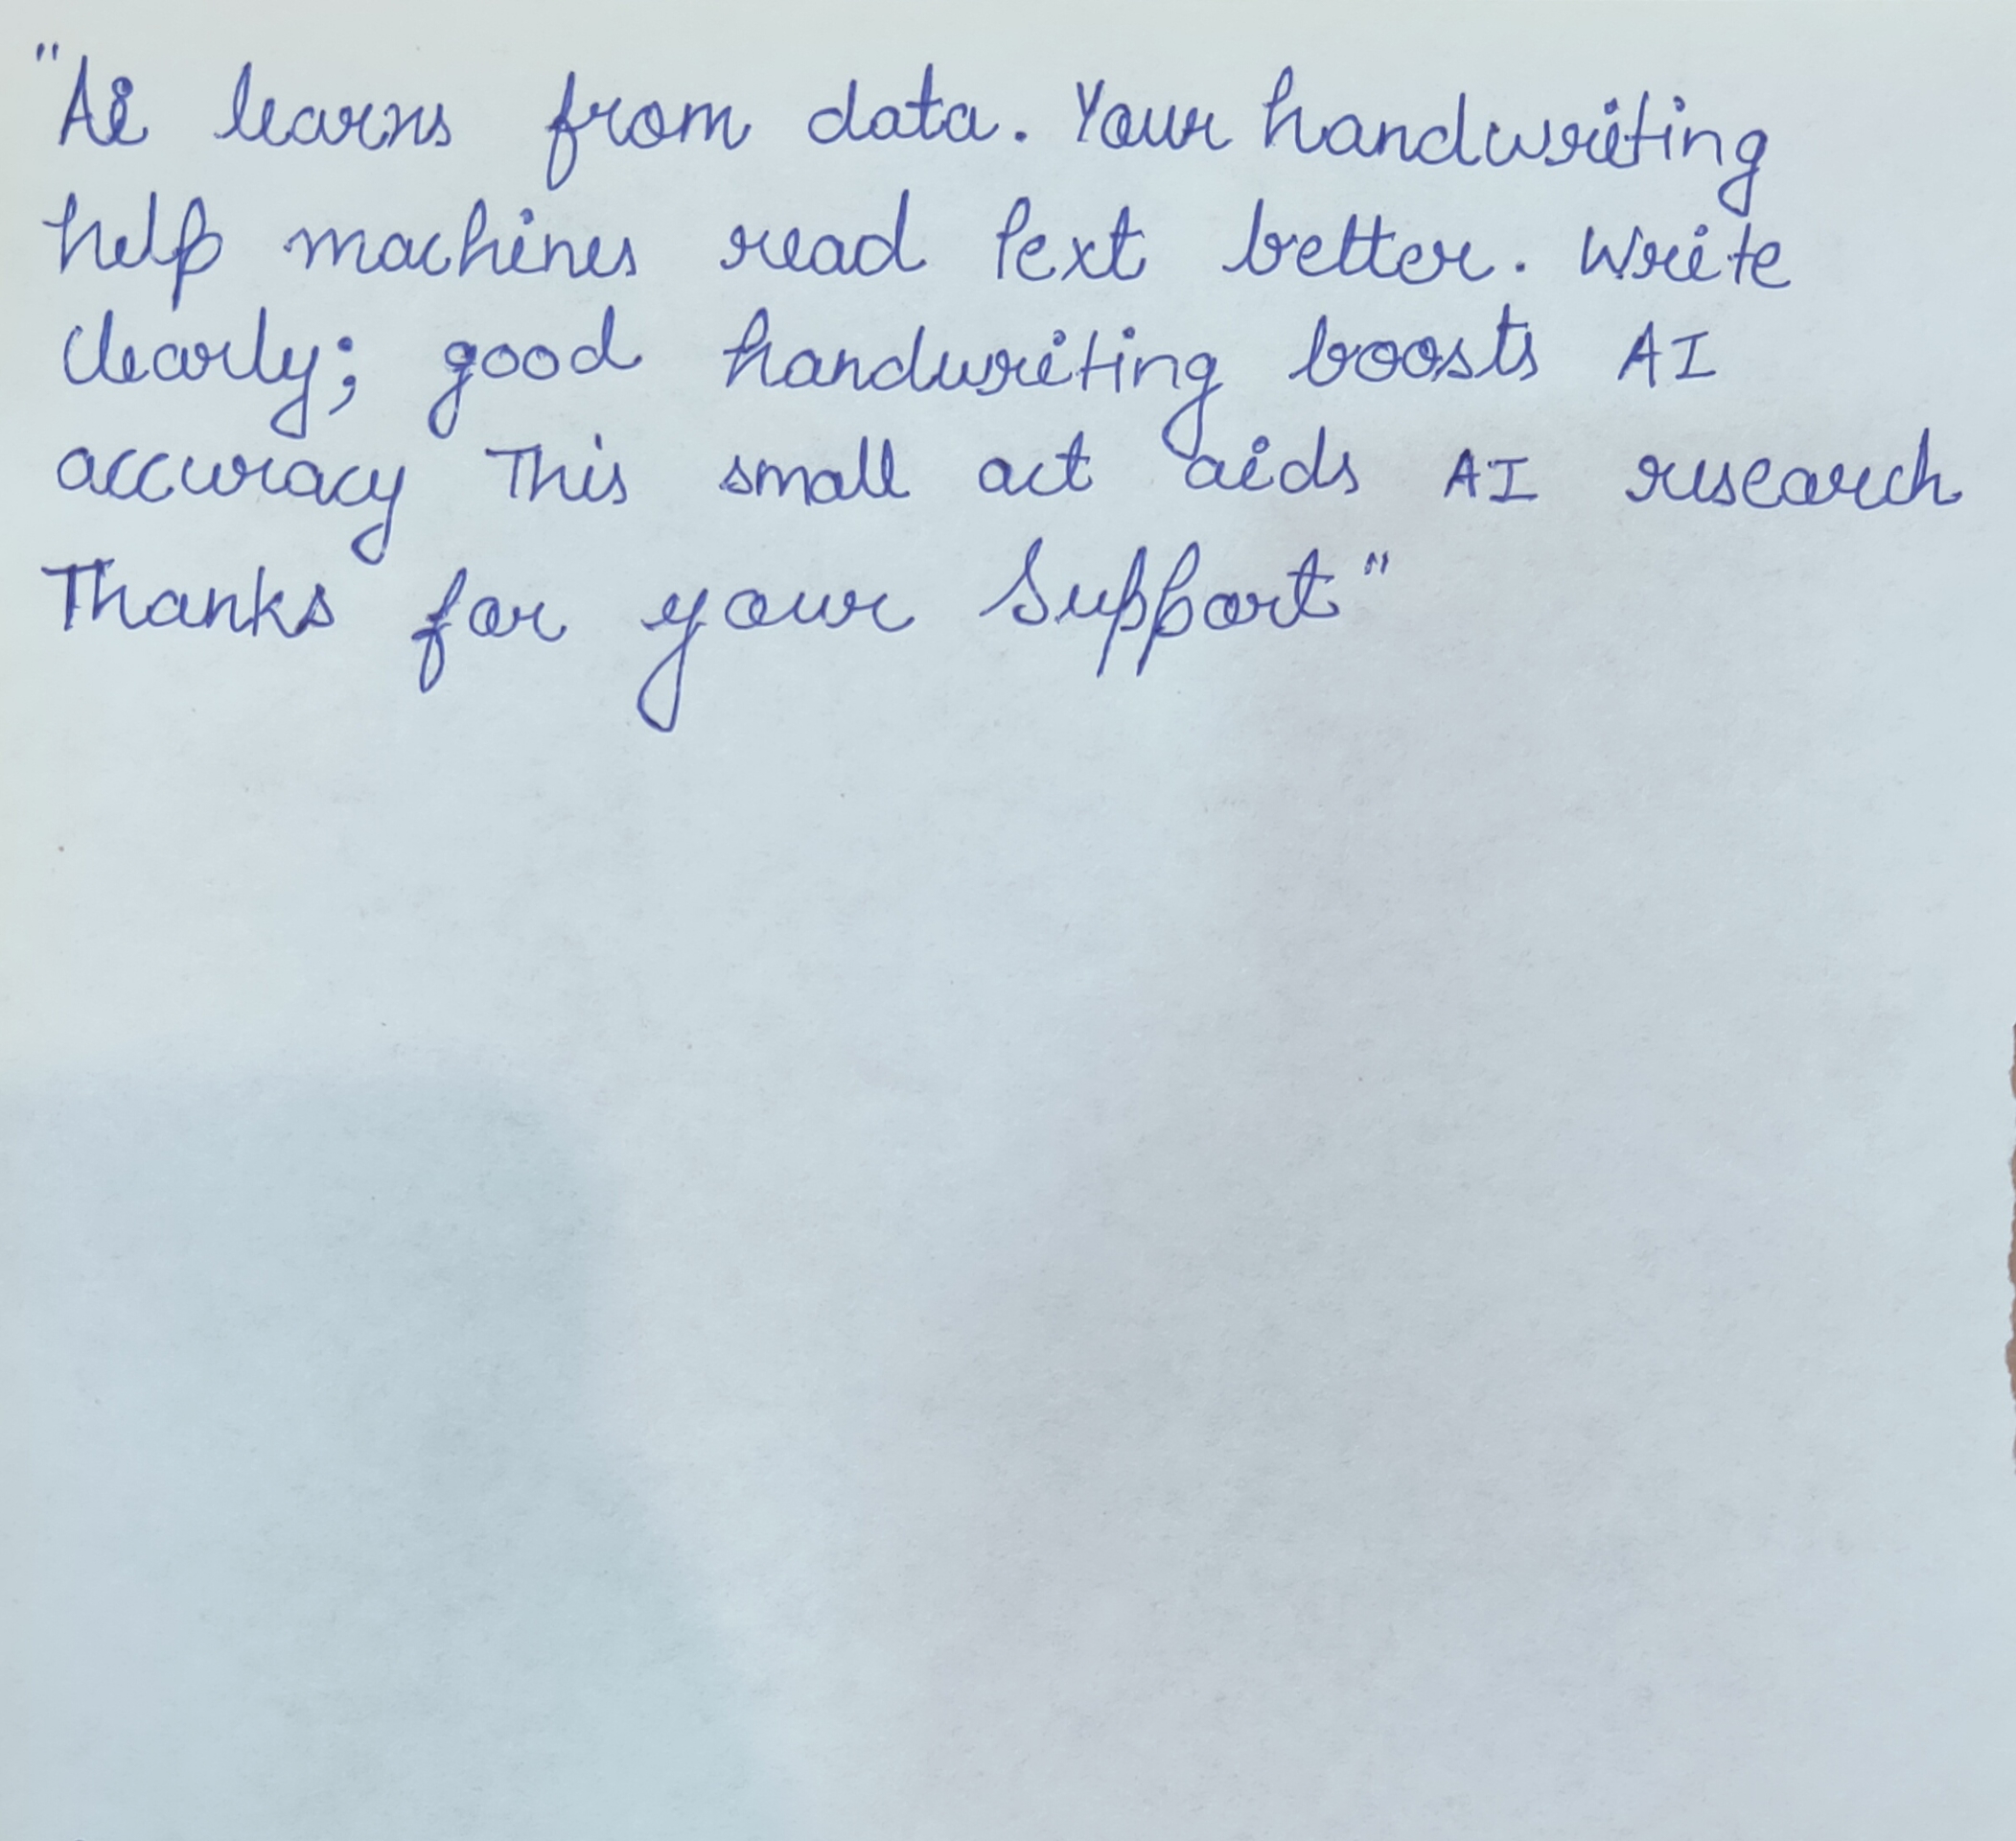 "Ai learns from data. Your handwriting
help machines read text better. Write
clearly; good handwriting boosts AI
accuracy This small act aids AI research
Thanks for your Support"